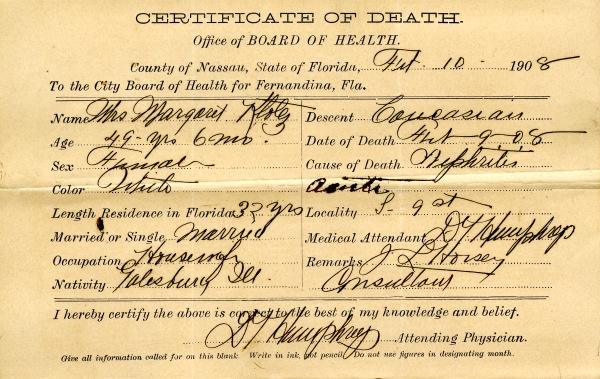 CERTIFICATE OF DEATH.
Office of BOARD OF HEALTH.
County of Nassau, State of Florida, Feb 10 1908
To the City Board of Health for Fernandina, Fla.
Name Mrs Margaret Descent Caucasian
Age 49-yrs 6 mo. Date of Death Feb 9-08
Sex Female Cause of Death Nephritis
Color White acute
Length Residence in Florida 32 yrs Locality S. 9 st
Married or Single Married Medical Attendant D G Humphreys
Occupation Housewife Remarks J L Horsey
Nativity Galesburg Ill. Consultant
I hereby certify the above is correct to the best of my knowledge and belief.
D G Humphreys Attending Physician.
Give all information called for on this blank Write in ink, not pencil Do not use figures in designating month.